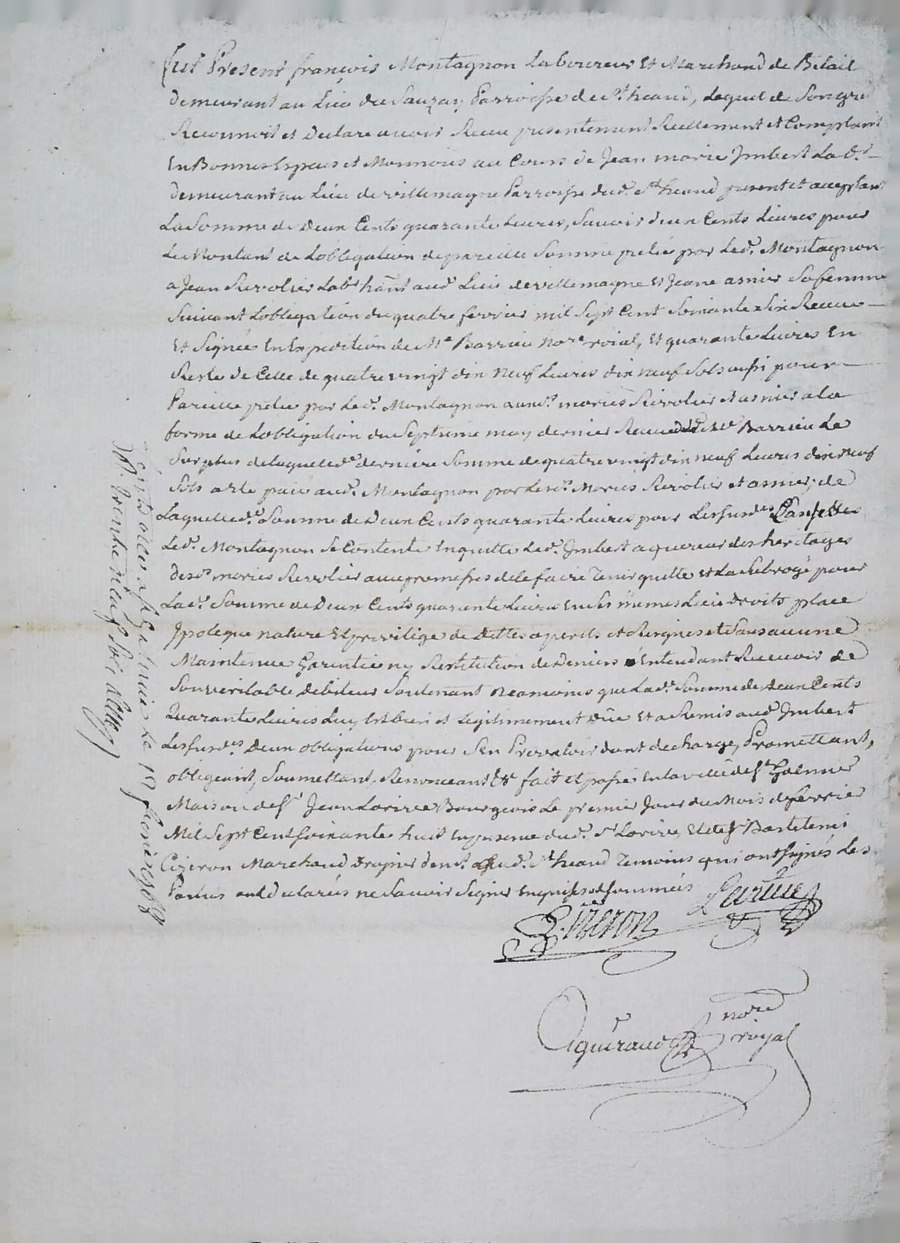 Fut Present françois Montagnon Laboureur Et Marchand de Betail
demeurant au Lieu du Sauzay Parroisse de st héand, Lequel de Son gré
Reconnoit et Declare avoir Receu presentement Reellement et Comptant
En Bonnes Especes et Monnoies au Cours de Jean marie Imbert Lab.r
demeurant au Lieu de villemagne Parroisse dud. st heand present et acceptant
La Somme de Deux Cents quarante Livres, Savoir deux Cents Livres pour
Le Montant de Lobligation de pareille Somme passée par Led. Montagnon
a Jean Revolier Labr hãnt aud. Lieu de villemagne Et Jeane asnier Sa femme
Suivant Lobligation du quatre fevrier mil Sept Cent Soixante Six Receue
Et Signée En Expedition de Me Barrieu nore roial, Et quarante Livres En
Reste de Celle de quatre vingt dix neuf Livres dix neuf Sols aussi pour
Pareille passée par Led. Montagnon auxd. mariés Revolier Et asnier a la
forme de Lobligation du Septieme may dernier Receue Me Barrieu Le
Surplus de laquelle dernière Somme de quatre vingt dix neuf Livres dix neuf
Sols a été paié aud. Montagnon par Lesd. Mariés Revolier et asnier, de
Laquelle d. Somme de Deux Cents quarante Livres pour Les Susd.es
Led. Montagnon Se Contente En quitte Led. Imbert acquereur des heritages
desd. mariés Revolier avec promesses de le faire Tenir quitte Et La Subrogé pour
Lad. Somme de Deux Cents quarante Livres En Les mêmes Lieu Droits place
Ipoteque nature Et privilége de Dettes a perils et Risques et Sans aucune
Maintenue Garentie ny Restitution de Deniers Entendant Recevoir de
Son veritable debiteur Soutenant Neamoins que Lad. Somme de deux Cents
Quarante Livres Luy Est bien et Legitimement Düe Et a Remis aud. Imbert
Les Susd.es Deux obligations pour S'en Prevaloir dont decharge, Promettant,
obligeant, Soumettant, Renonceant &c fait et passé En la ville de St Galmier
Maison de Sr Jean Larive Bourgeois Le premier Jour du Mois de fevrier
Mil Sept Cent Soixante huit En presence dud. Sr Larive, Et de Sr Bartelemi
Cizeron Marchand Drapier dud. St heand Temoins qui ont Signés Les
Parties ont declarés ne Savoir Signer Enquises et Sommées
B. Cizeron Larive
nore
royal
Controlé a St Galmier Le 15 fevrier 1768
R. trente neuf Sols